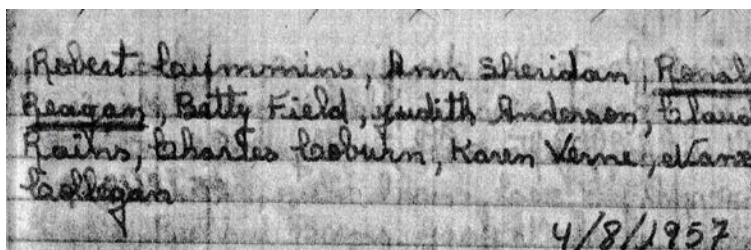 Robert Cuymmins, Ann Sheridan, Ronal
Reagan, Betty Field, Judith Anderson, Claud
Rains, Charles Coburn, Karen Verne, Nanc
Collegan
4/8/1957